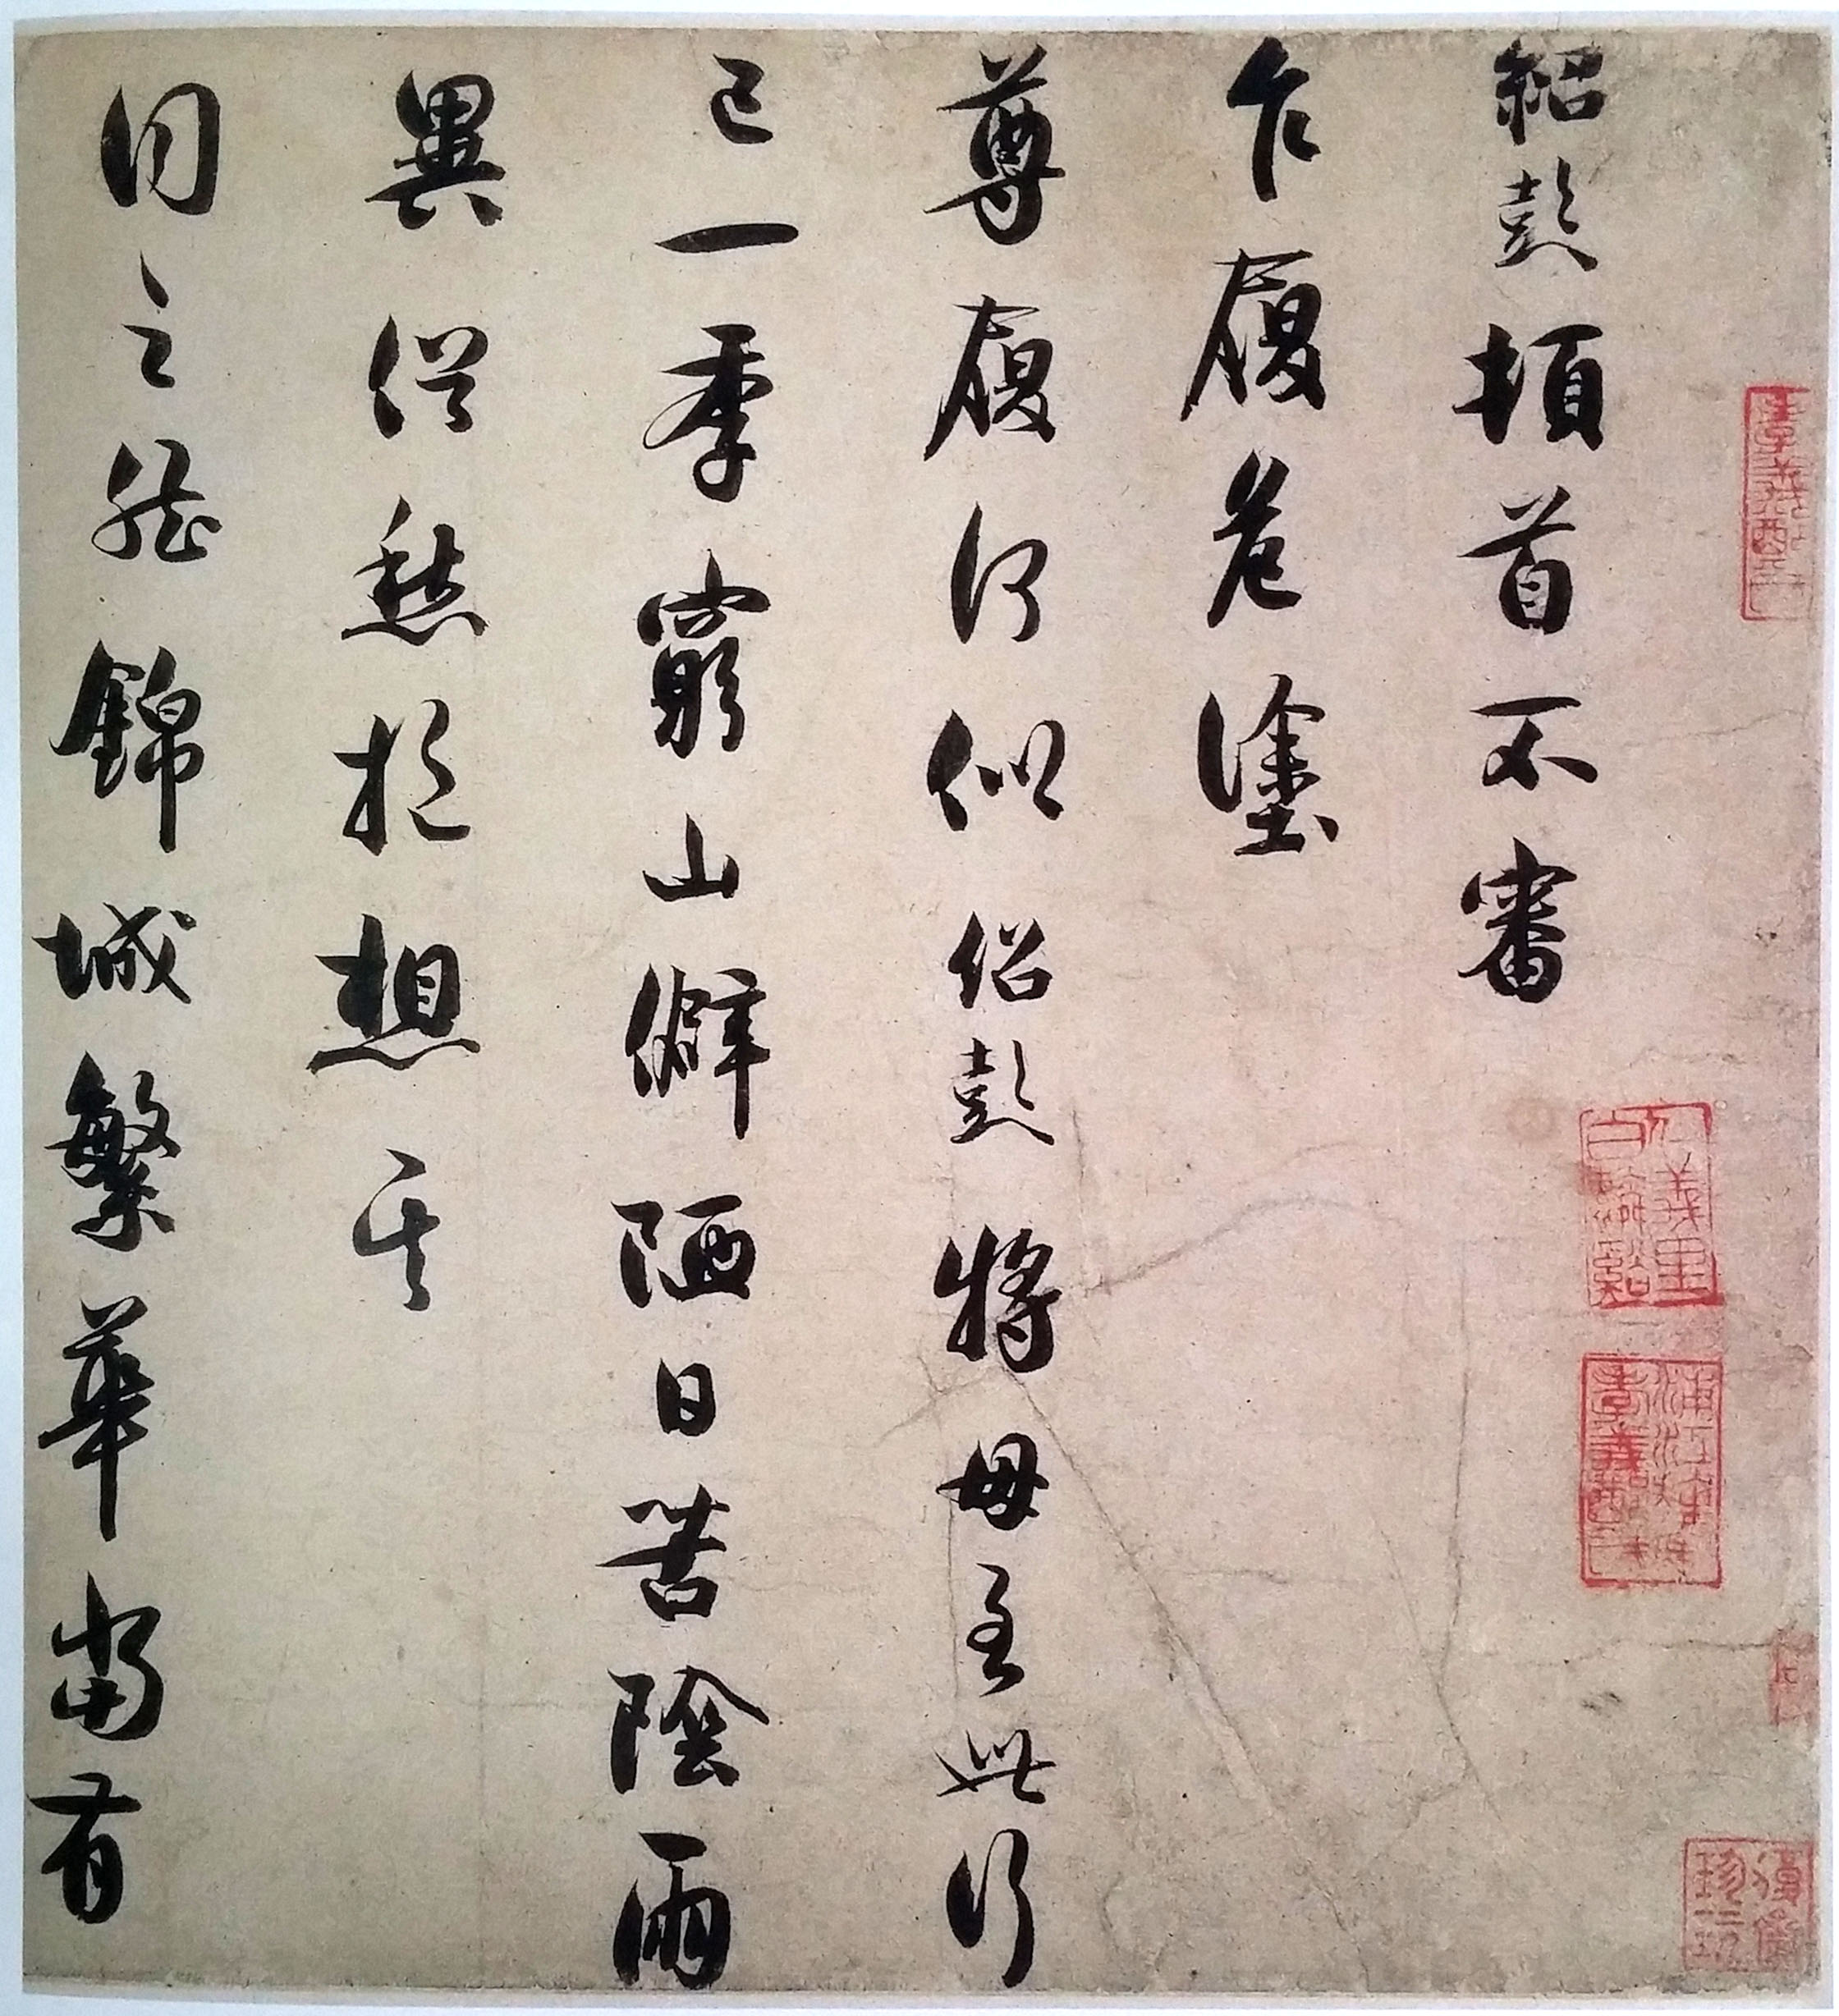 紹彭頓首不審
乍履危塗
尊履何似紹彭將母至此行
已一季窮山僻陋日苦陰雨
異從愁於想其
同之能錦城繁華當有